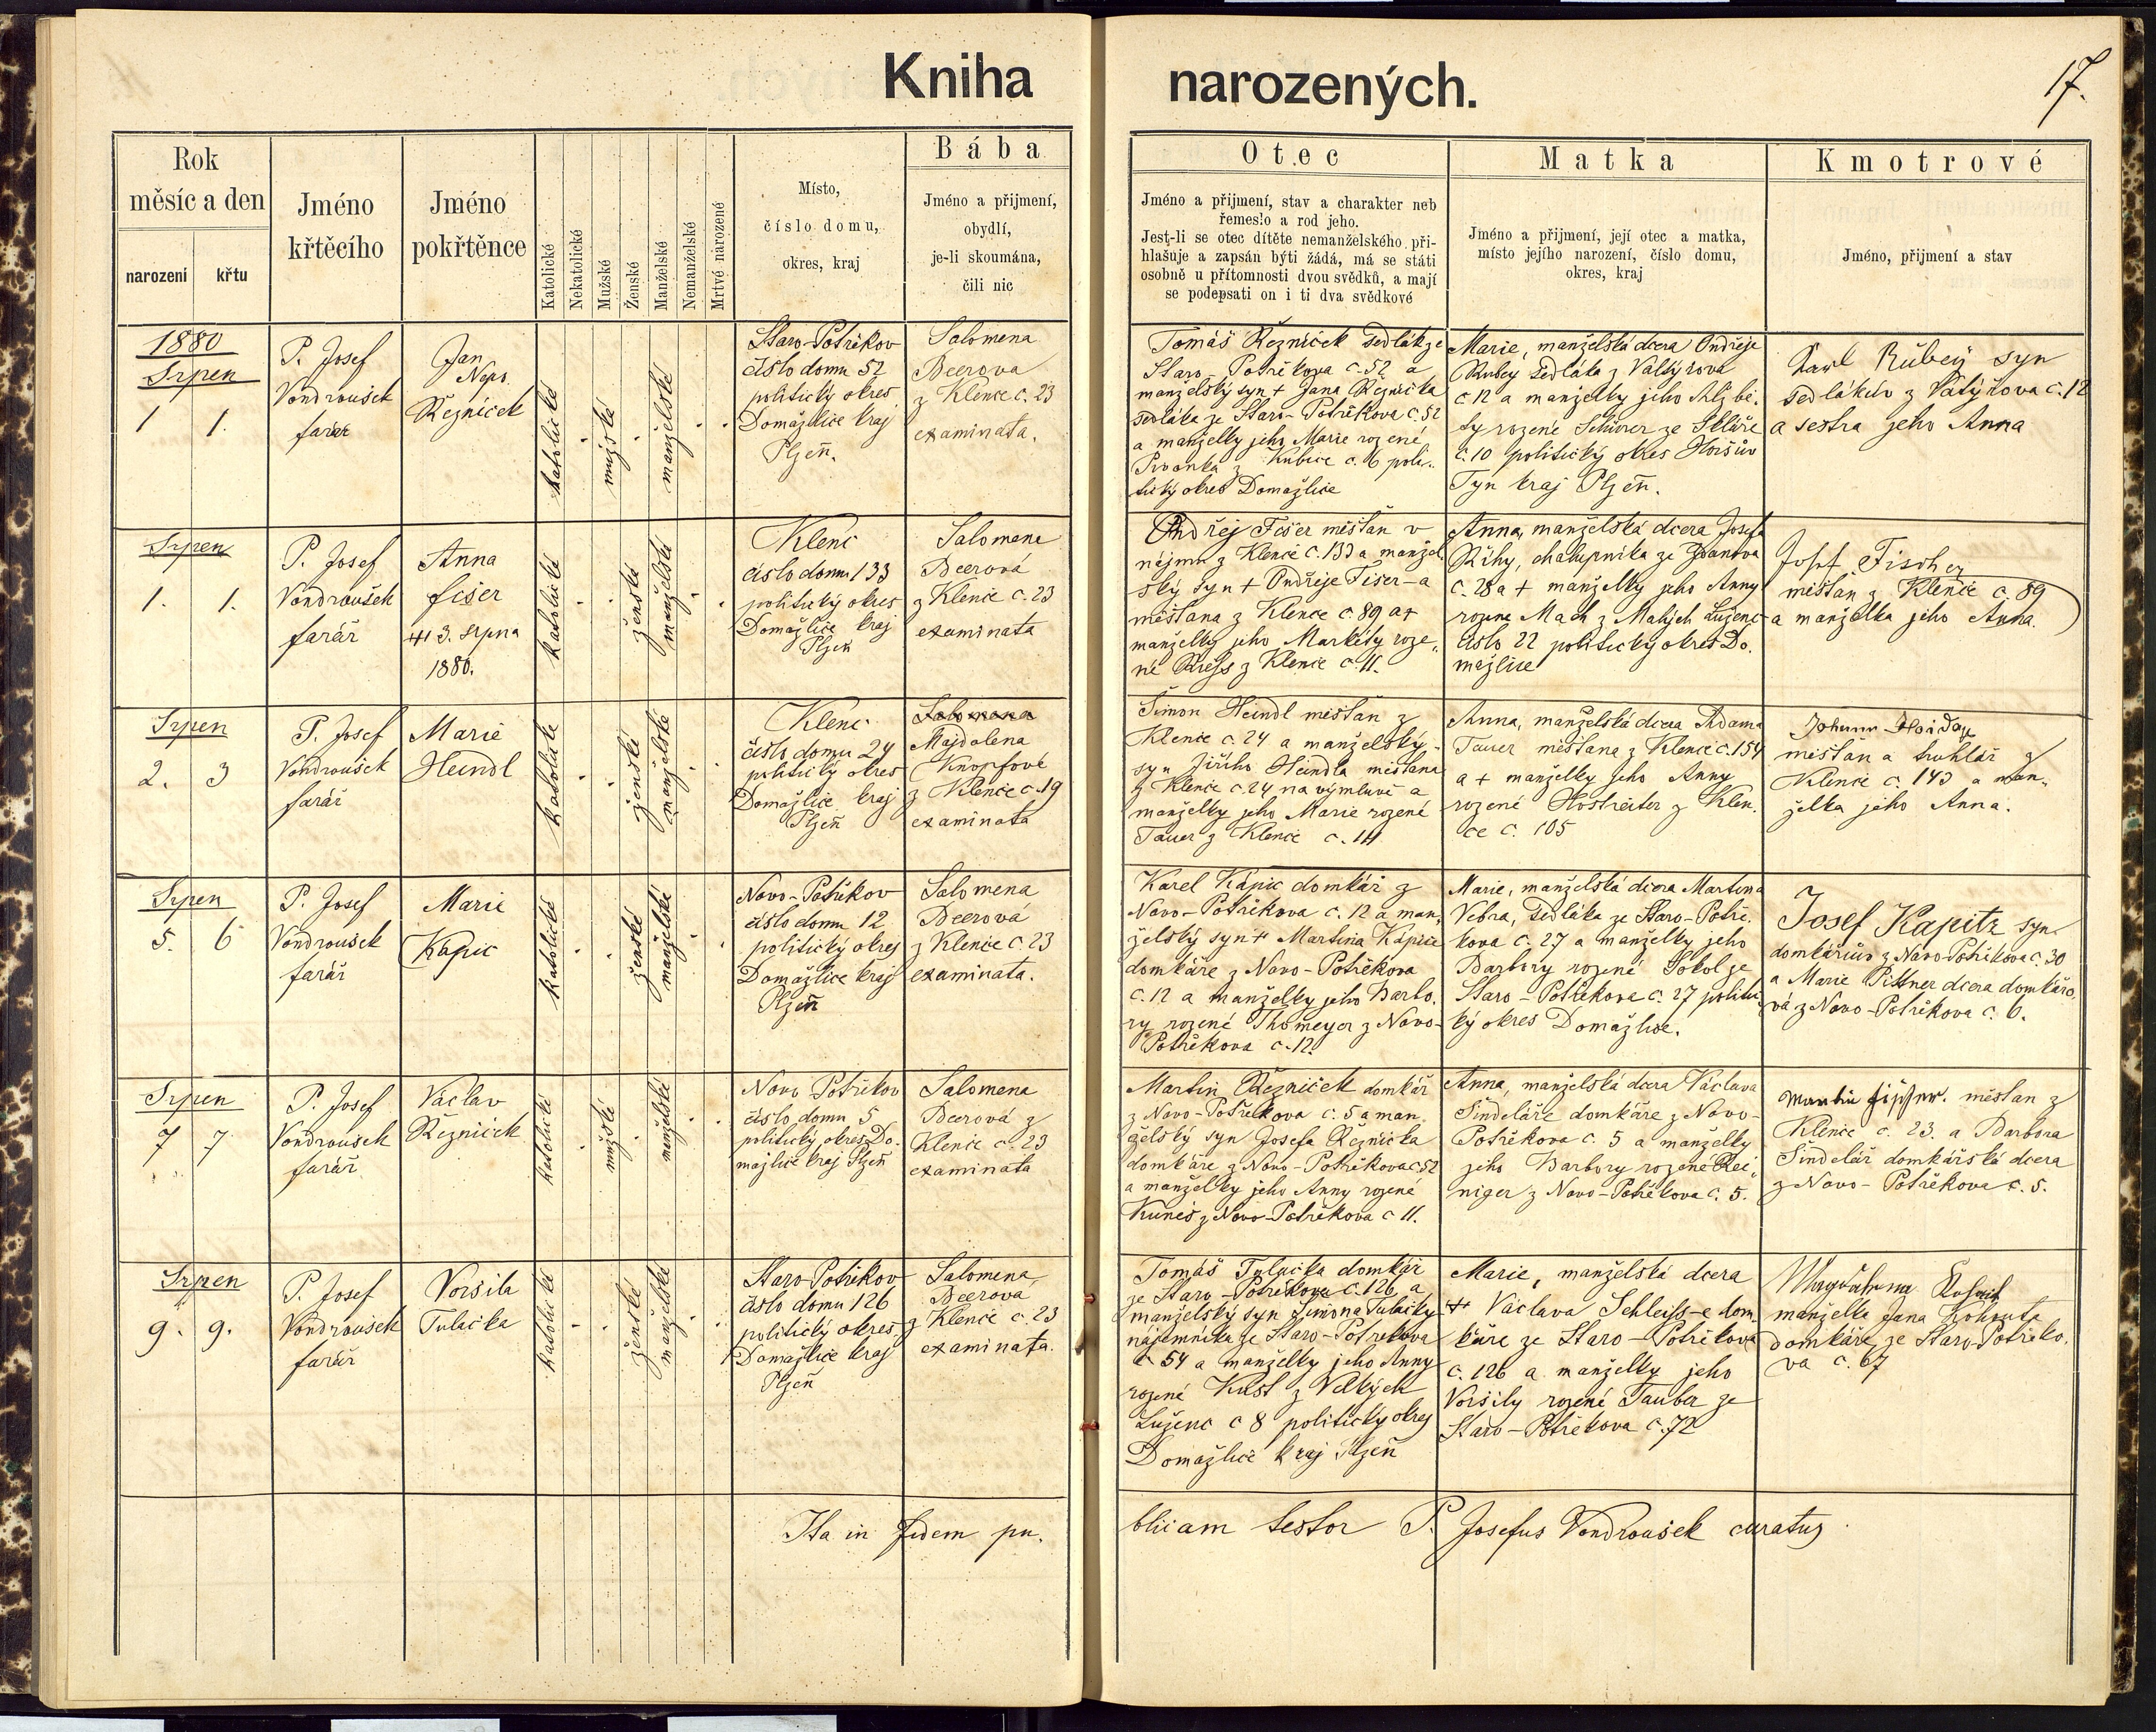 Kniha narozených.
17.
Rok
měsíc a den
narození křtu
Jméno
křtěcího
Jméno
pokřtěnce
Katolické
Nekatolické
Mužské
Ženské
Manželské
Nemanželské
Mrtvě narozené
Místo,
číslo domu,
okres, kraj
Bába
Jméno a přijmení,
obydlí,
je-li skoumána,
čili nic
Otec
Jméno a přijmení, stav a charakter neb
řemeslo a rod jeho.
Jest-li se otec dítěte nemanželského při-
hlašuje a zapsán býti žádá, má se státi
osobně u přítomnosti dvou svědků, a mají
se podepsati on i ti dva svědkové
Matka
Jméno a přijmení, její otec a matka,
místo jejího narození, číslo domu,
okres, kraj
Kmotrové
Jméno, přijmení a stav
1880
Srpen
1 1.
P. Josef
Vondroušek
farář
Jan
Nep.
Řezníček
katolické
mužské
manželské
Staro-Postřekov
číslo domu 52
politický okres
Domažlice kraj
Plzeň.
Salomena
Beerova
z Klence c. 23
examinata.
Tomáš Řezníček sedlák ze
c. 52 a
manželský syn + Jana Řezníčka
a manželky jeho Marie rozené
z Kubice c. 6 poli-
tický okres Domažlice
Marie, manželská dcera Ondřeje
Rubey sedláka z
c. 12 a manželky jeho Alžbě-
ty rozené ze
c. 10 politický okres Horšův
Tyn kraj Plzeň.
Karl Rübey syn
sedlákův z c. 12
a sestra jeho Anna
Srpen
1. 1.
P. Josef
Vondroušek
farář
Anna
Fišer
3. srpna
1880.
katolické
ženské
manželské
Klenč
číslo domu 133
politický okres
Domažlice kraj
Plzeň
Salomena
Beerová
z Klenče c. 23
examinata
Ondřej Fišer měšťan v
nájmu z Klenče c. 133 a manžel-
ský syn + Ondřeje Fišer-a
měšťana z Klence c. 89 a +
manželky jeho Markéty roze-
né z Klence c. 11.
Anna, manželská dcera Josefa
Říhy, chalupníka ze
c. 28 a + manželky jeho Anny
rozené Mach z Malých Luženc
číslo 22 politický okres Do-
mažlice
Josef Fischer
měšťan z Klenče c. 89
a manželka jeho Anna.
Srpen
2. 3
P. Josef
Vondroušek
farář
Marie
Heindl
katolické
ženské
manželské
Klenč
číslo domu 24
politický okres
Domažlice kraj
Plzeň
Salomena
Majdalena
Knopfové
z Klence c. 19
examinata
Šimon Heindl měšťan z
Klenče c. 24 a manželský
syn Jiřího Heindla měšťana
z Klenče c. 24 na výměnku a
manželky jeho Marie rozené
Tauer z Klenče c. 111
Anna, manželská dcera Adama
Tauer měšťana z Klence c. 154
a + manželky jeho Anny
rozené z Klen-
če c. 105
Johann
měšťan a truhlář z
Klenče c. 143 a man-
želka jeho Anna.
Srpen
5. 6
P. Josef
Vondroušek
farář
Marie
Kápic
katolické
ženské
manželské
Novo-Postřekov
číslo domu 12
politický okres
Domažlice kraj
Plzeň
Salomena
Beerová
z Klenče c. 23
examinata.
Karel Kápic domkář z
Novo-Postřekova c. 12 a man-
želský syn + Martina Kápice
domkáře z Novo-Postřekova
c. 12 a manželky jeho Barbo-
ry rozené Thomeyer z Novo-
Postřekova c. 12.
Marie, manželská dcera Martina
Vebra, sedláka ze Staro-Postře-
kova c. 27 a manželky jeho
Barbory rozené Sokol ze
Staro-Postřekova c. 27 politic-
ký okres Domažlice.
Josef Kapitz syn
domkářův z Novo-Postřekova c. 30
a Marie Pittner dcera domkářo-
vá z Novo-Postřekova c. 6.
Srpen
7 7.
P. Josef
Vondroušek
farář
Václav
Řezníček
katolické
mužské
manželské
Novo Postřekov
číslo domu 5
politický okres Do-
mažlice kraj Plzeň
Salomena
Beerová z
Klenče c. 23
examinata
Martin Řezníček domkář
z Novo-Postřekova c. 5 a man-
želský syn Josefa Řezníčka
domkáře z Novo-Postřekova c. 52
a manželky jeho Anny rozené
Kuneš z Novo-Postřekova c 11.
Anna, manželská dcera Václava
Šindeláře domkáře z Novo-
Postřekova c. 5 a manželky
jeho Barbory rozené Rei-
niger z Novo-Postřekova c. 5.
Martin měšťan z
Klenče c. 23. a Barbora
Šindelář domkářská dcera
z Novo-Postřekova c. 5.
Srpen
9. 9.
P. Josef
Vondroušek
farář
Voršila
Tulačka
katolické
ženské
manželské
Staro Postřekov
číslo domu 126
politický okres
Domažlice kraj
Plzeň
Salomena
Beerova
z Klenče c. 23
examinata.
Tomáš Tulačka domkář
ze Staro-Postřekova c. 126 a
manželský syn Šimona Tulačky
nájemníka ze Staro-Postřekova
c 54 a manželky jeho Anny
rozené z Velkých
Luženc c 8 politický okres
Domažlice kraj Plzeň
Marie, manželská dcera
+ Václava Schleiss-e dom-
káře ze Staro-Postřekova
c. 126 a manželky jeho
Voršily rozené Tauber ze
Staro-Postřekova c. 72
Magdalena Kohout
manželka Jana Kohouta
domkáře ze Staro-Postřeko-
va c. 67
Ita in fidem pu-
blicam testor P. Josefus Vondroušek curatus